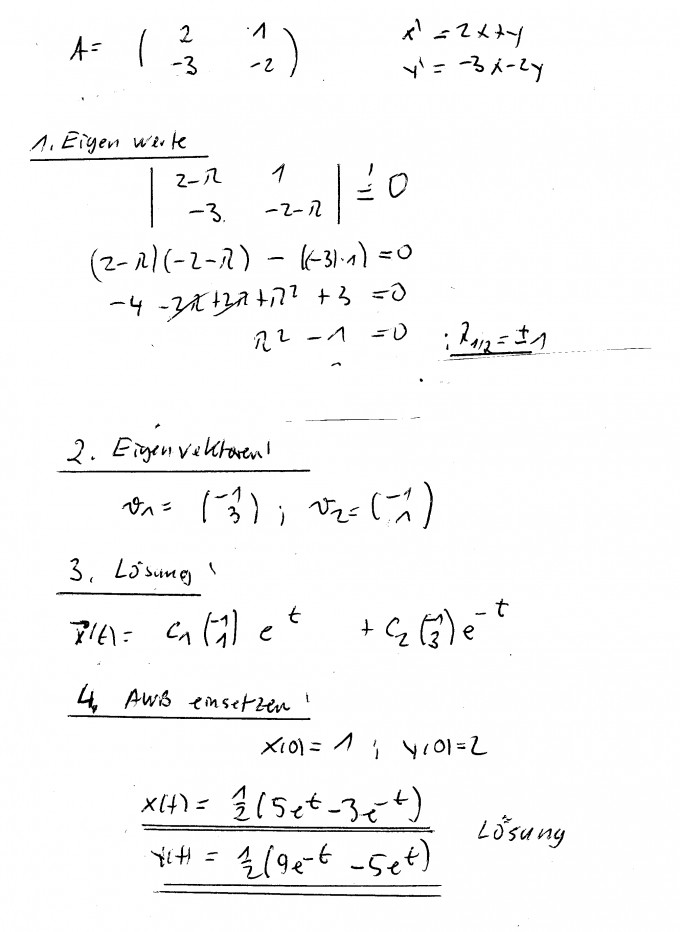 A = ( 2 1 ) x' = 2x+y
( -3 -2 ) y' = -3x-2y
1. Eigenwerte
| 2-λ 1 | != 0
| -3 -2-λ |
(2-λ)(-2-λ) - ((-3)·1) = 0
-4 -2λ+2λ+λ² + 3 = 0
λ² - 1 = 0 ; λ1/2 = ±1
2. Eigenvektoren:
v1 = (-1 3) ; v2 = (-1 1)
3. Lösung:
x(t) = C1 (-1 1) e^t + C2 (-1 3) e^-t
4. AWB einsetzen:
x(0) = 1 ; y(0)=2
x(t) = 1/2 (5e^t - 3e^-t)
y(t) = 1/2 (9e^-t - 5e^t) Lösung